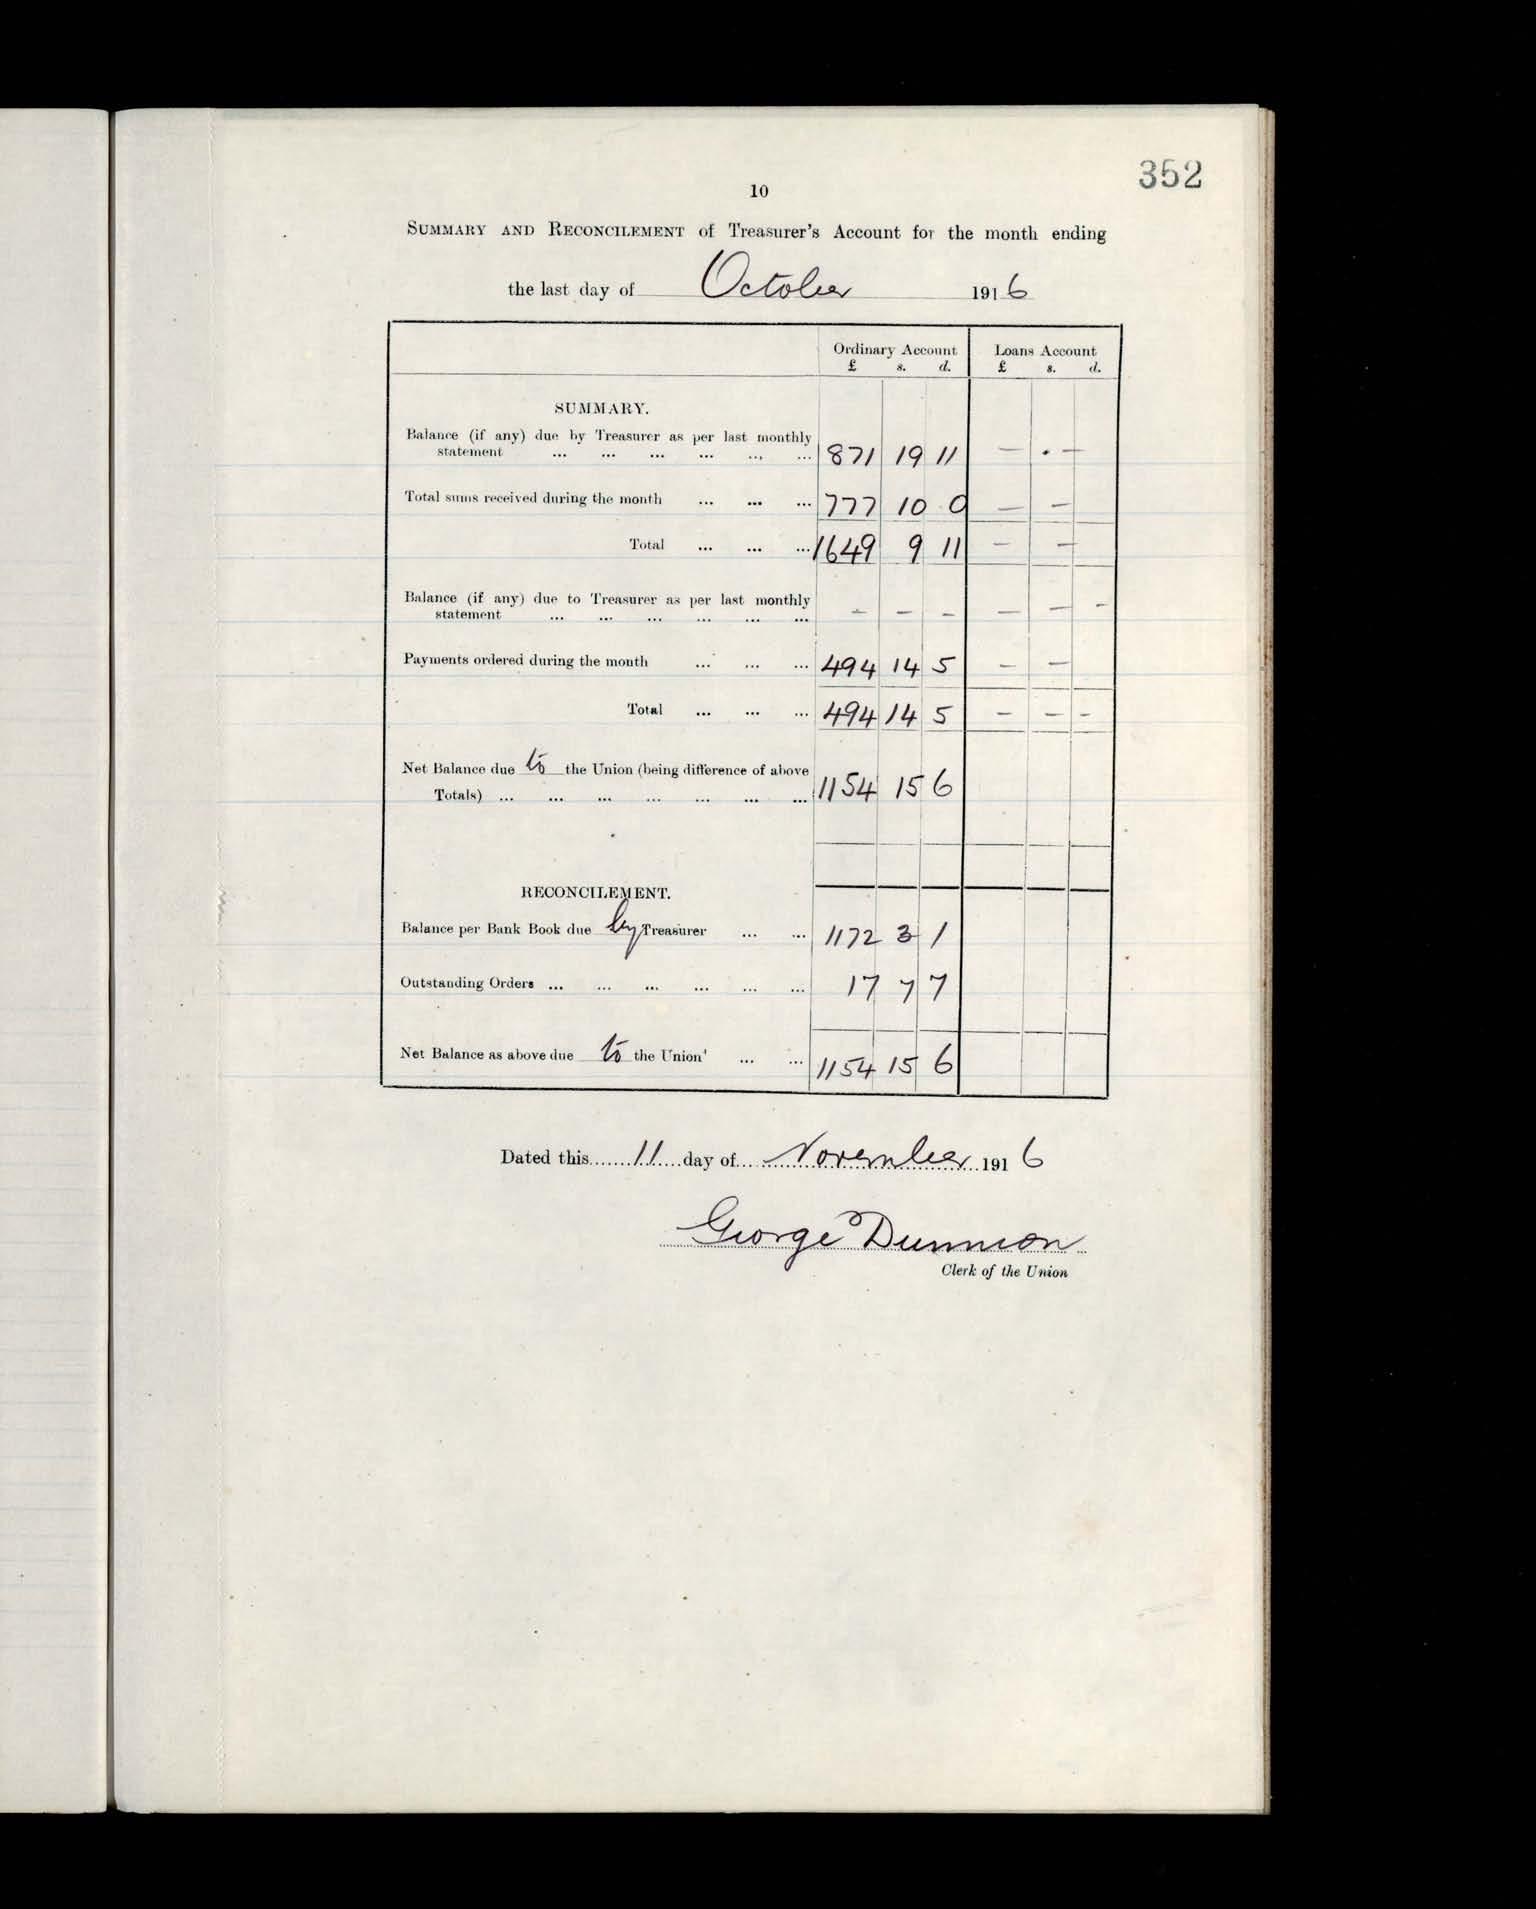 352
10
SUMMARY AND RECONCILEMENT of Treasurer's Account for the month ending
the last day of October 1916
Ordinary Account Loans Account
£ s. d. £ s. d.
SUMMARY.
Balance (if any) due by Treasurer as per last monthly
statement ... ... ... ... ... ... 871 19 11 — . —
Total sums received during the month ... ... ... 777 10 0 — —
Total ... ... ... 1649 9 11 — —
Balance (if any) due to Treasurer as per last monthly
statement ... ... ... ... ... ... – – – — — –
Payments ordered during the month ... ... ... 494 14 5 — —
Total ... ... ... 494 14 5 — — –
Net Balance due to the Union (being difference of above
Totals) ... ... ... ... ... ... ... 1154 15 6
RECONCILEMENT.
Balance per Bank Book due by Treasurer ... ... 1172 3 1
Outstanding Orders ... ... ... ... ... ... 17 7 7
Net Balance as above due to the Union' ... ... 1154 15 6
Dated this.......11....day of....November..1916
George Dunnion
Clerk of the Union